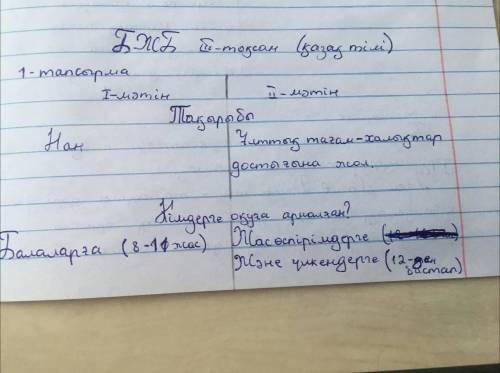 БЖБ III-тоқсан (қазақ тілі)
1-тапсырма
I-мәтін II-мәтін
Тақырыбы
Нан Ұлттық тағам-халықтар
достығына жол.
Кімдерге оқуға арналған?
Балаларға (8-11 жас) Жасөспірімдерге
Және үлкендерге (12-ден бастап)